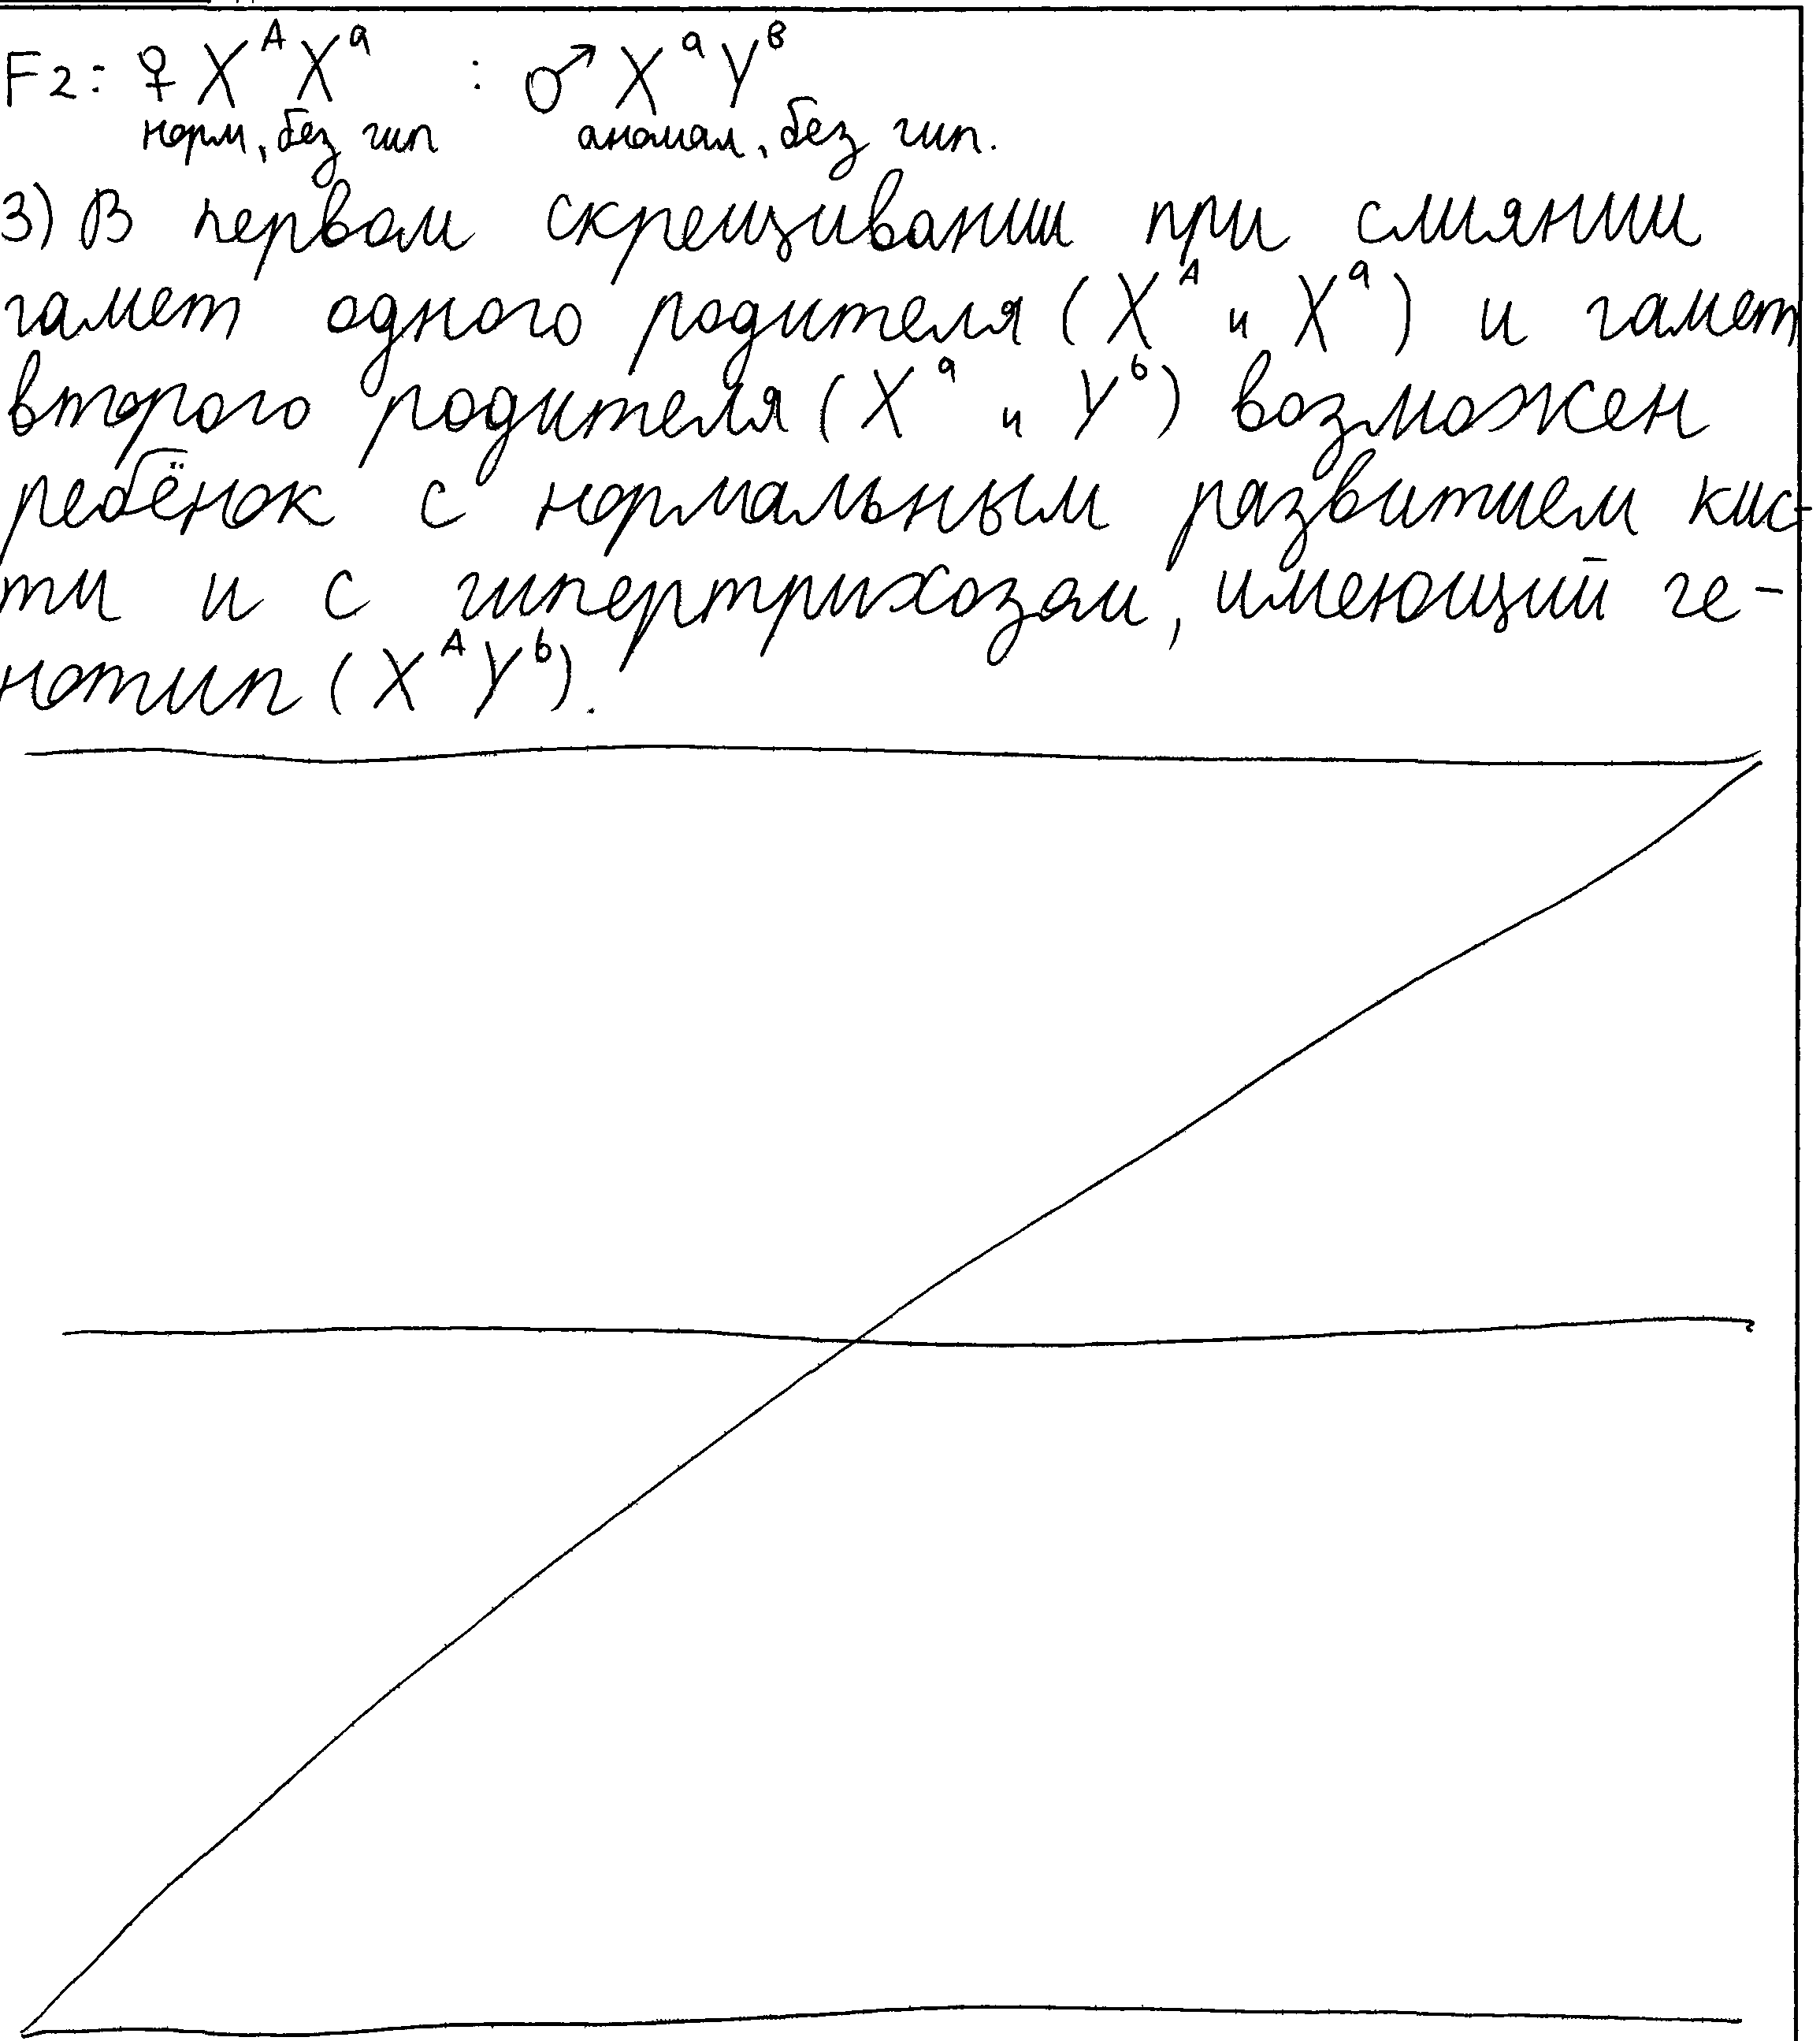 F2: ♀ Xᴬ Xᵃ : ♂ Xᵃ Yᴮ
норм, без гип аномал, без гип.
3) В первом скрещивании при слиянии
гамет одного родителя (Xᴬ и Xᵃ) и гамет
второго родителя (Xᵃ и Yᵇ) возможен
ребёнок с нормальным развитием кис-
ти и с гипертрихозом, имеющий ге-
нотип (Xᴬ Yᵇ).